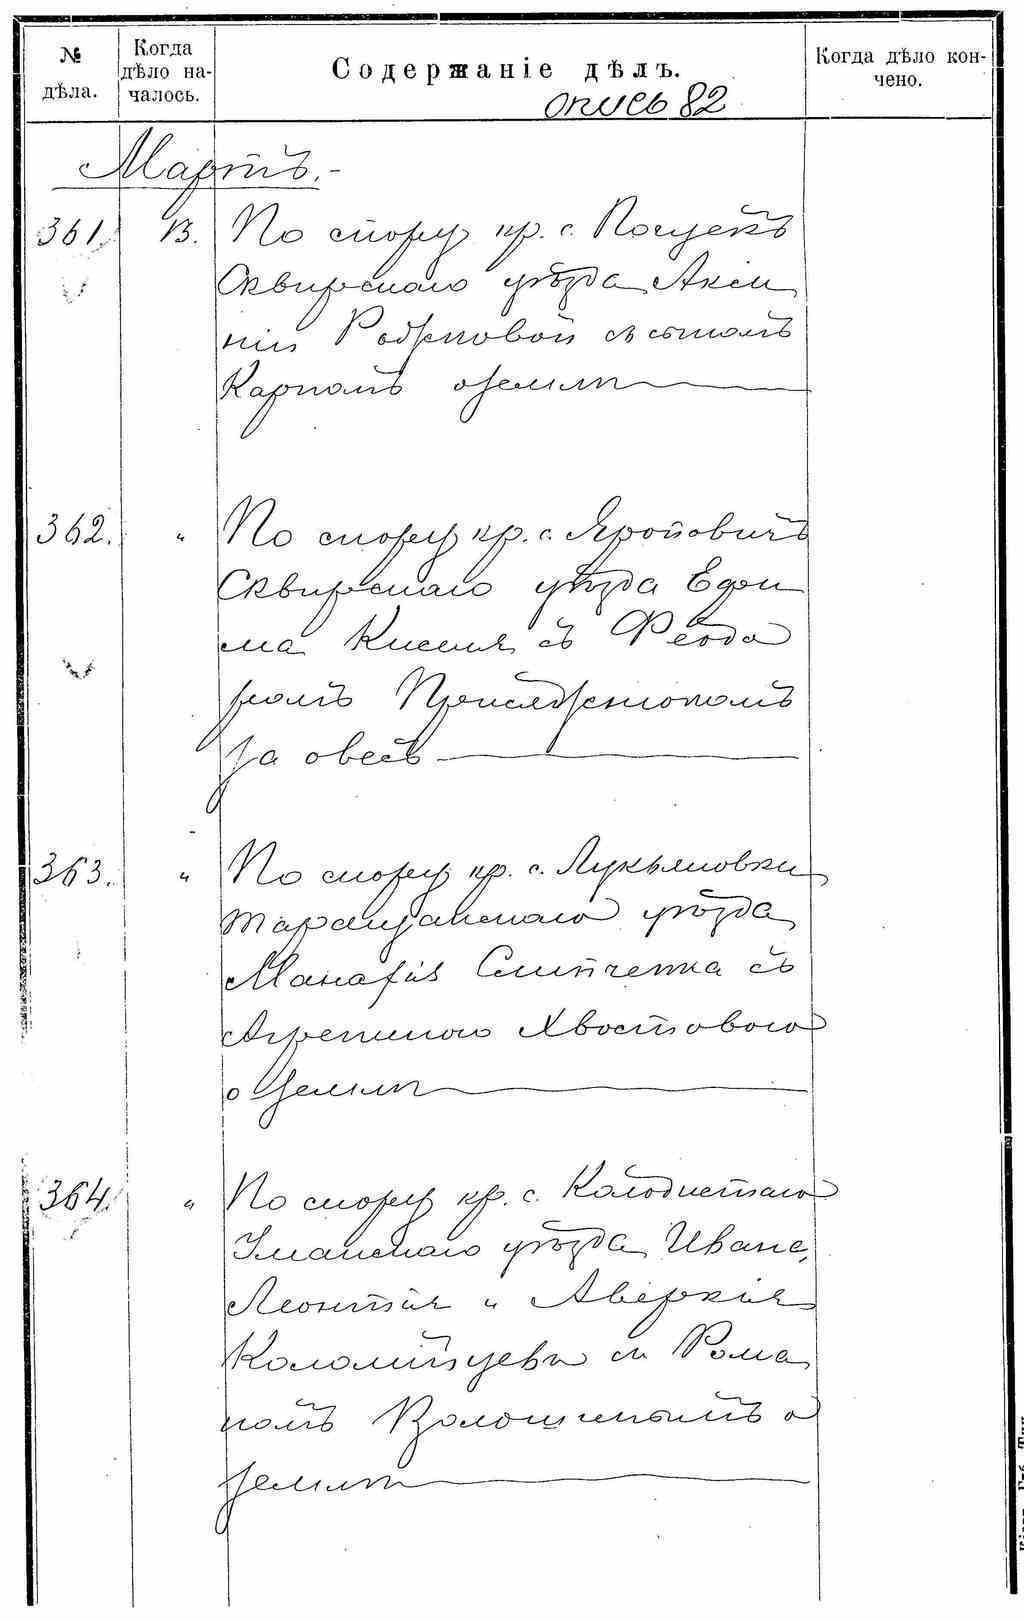 № дѣла.
Когда дѣло началось.
Содержаніе дѣлъ.
Когда дѣло кончено.
опись 82
Мартъ.-
361. 13. По спору кр. с. Почуекъ
Сквирскаго уѣзда Акси
ніи Родзковой съ сыномъ
Карпомъ о землѣ
362. " По спору кр. с. Яроповичъ
Сквирскаго уѣзда Ефи
ма Киселя съ Феодо
ромъ Присяжнюкомъ
за овесъ
363. " По спору кр. с. Лукьяновки
Таращанскаго уѣзда
Манафія Слипченка съ
Хвостового
о землѣ
364. " По спору кр. с. Колодистаго
Уманскаго уѣзда Ивана,
Леонтія и Аверкія
Коломійцевъ съ Рома
номъ Волошинымъ о
землѣ